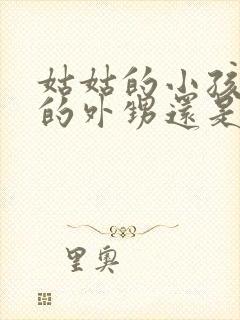 姑姑的小孩
的外甥還是
里奧